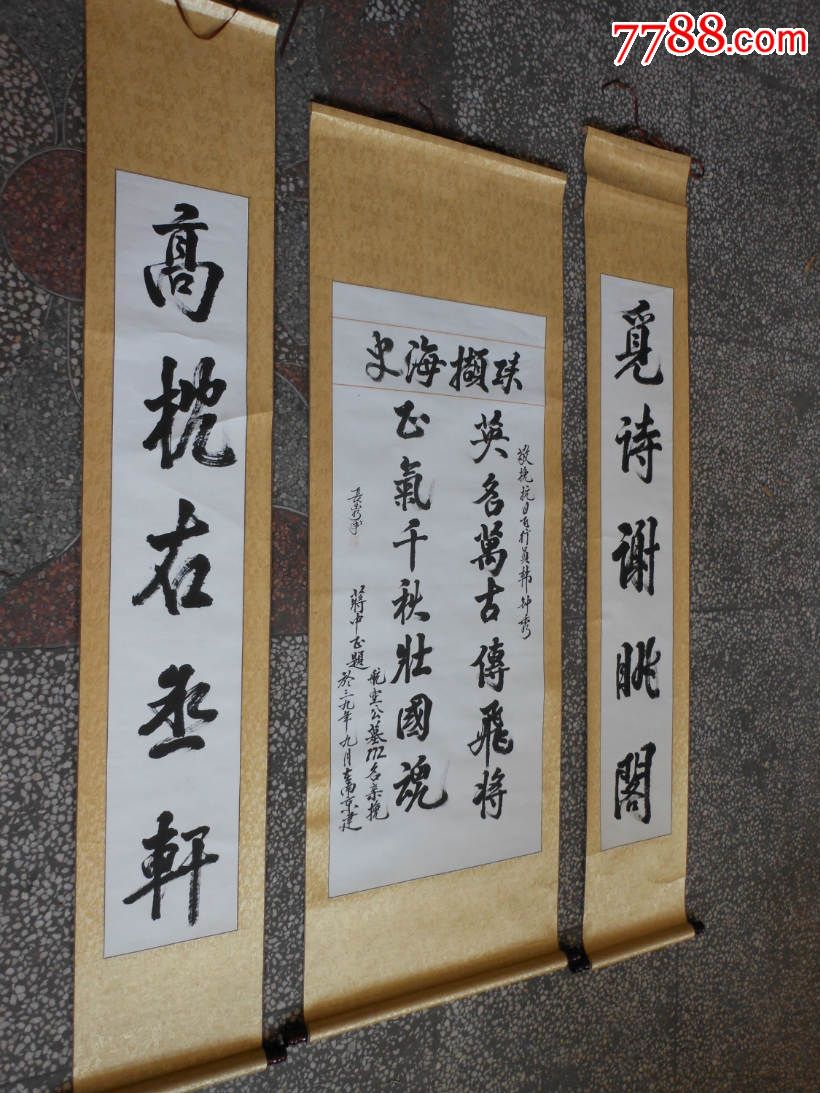 7788.com
覓诗谢眺閣
史海擷珠
敬挽抗日飞行員韩仲秀
英名萬古傳飛将
正氣千秋壮國魂
蔣中正題
航空公墓172名亲挽
於三九年九月在南京建
高枕右丞軒